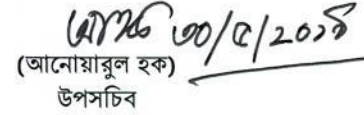 ৩০/৫/২০১৪
(আনোয়ারুল হক)
উপসচিব